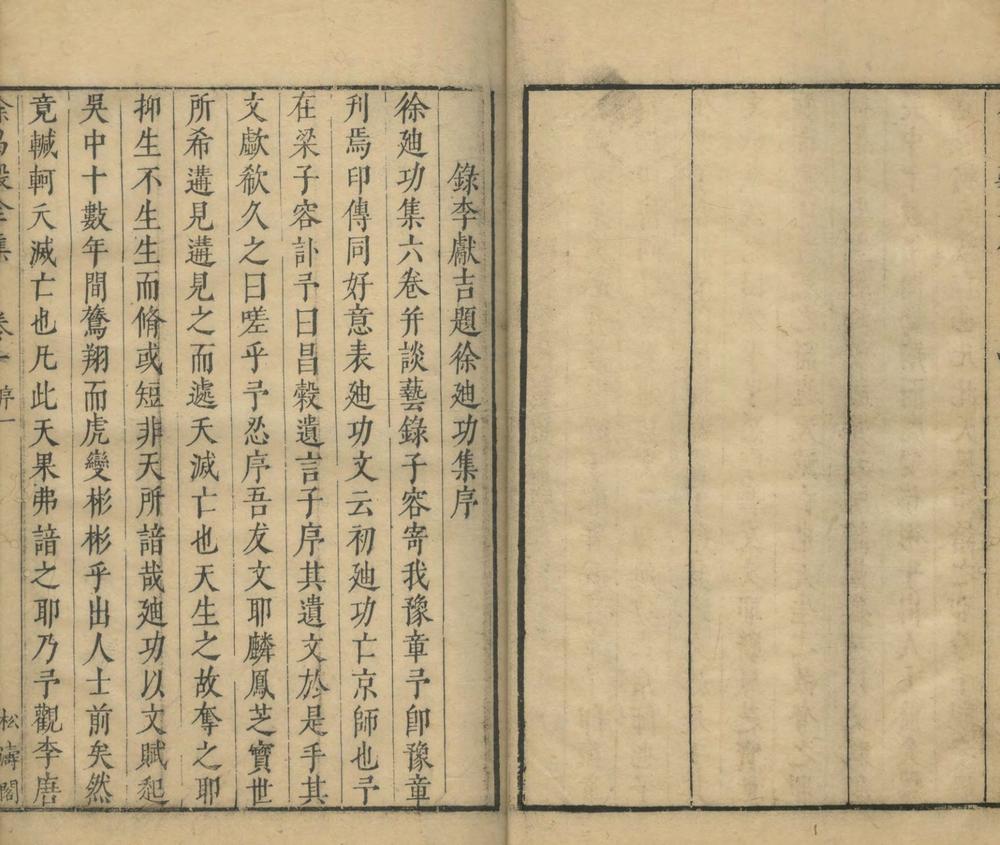 錄李獻吉題徐廸功集序
徐廸功集六卷并談藝錄子容寄我豫章予卽豫章
刋焉印傳同好意表廸功文云初廸功亡京師也予
在梁子容訃予曰昌榖遺言子序其遺文於是手其
文歔欷久之曰嗟乎予忍序吾友文耶麟鳳芝寶世
所希遘見遘見之而遽夭滅亡也天生之故奪之耶
抑生不生生而脩或短非天所諳哉廸功以文賦起
吳中十數年間鶩翔而虎變彬彬乎出人士前矣然
竟轗軻夭滅亡也凡此天果弗諳之耶乃予觀李唐
徐昌榖全集 卷一 序一 松濤閣